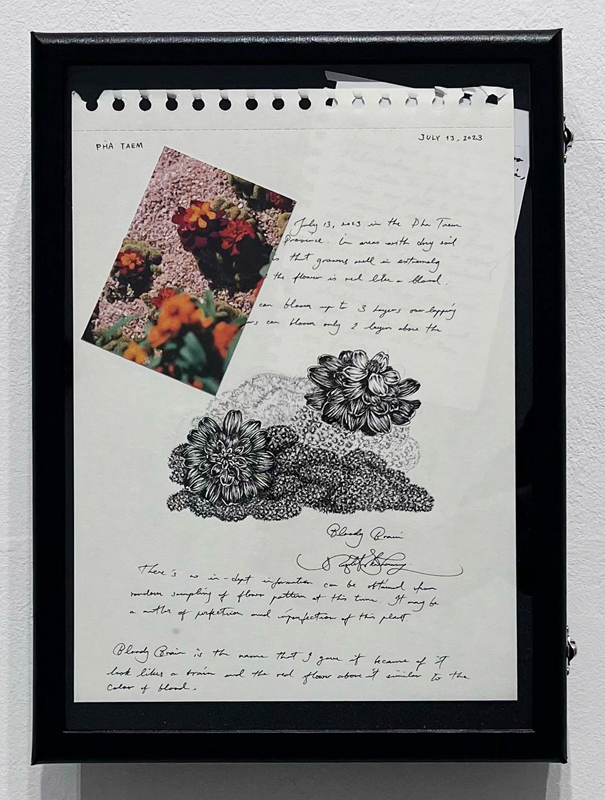 PHA TAEM
JULY 13, 2023
July 13, 2023 in the Pha Taem
Provence. In areas with dry soil
that grows well in extremely
the flower is red like a blood.
can bloom up to 3 layers overlapping
can bloom only 2 layer above the
Bloody Brain
There's no in-dept information can be obtained from
random sampling of flower pattern at this time. It may be
a matter of perfection and imperfection of this plant
Bloody Brain is the name that I gave it because of it
look likes a brain and the red flower above it similar to the
color of blood.